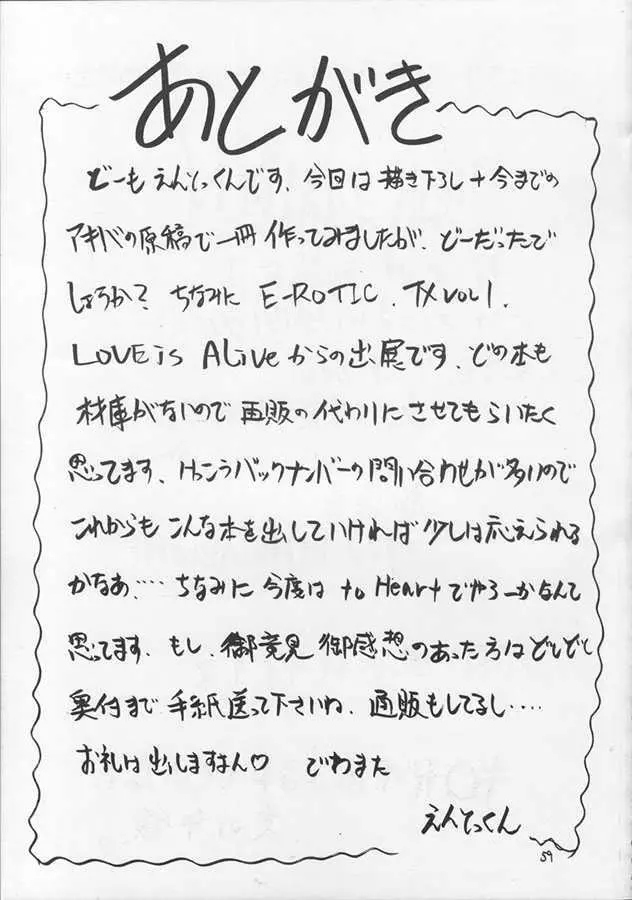 あとがき
どーもえんとっくんです、今回は描き下ろし+今までの
アキバの原稿で一冊作ってみましたが、どーだったで
しょうか? ちなみに E-ROTIC、TX VOL1、
LOVE is ALive からの出展です、どの本も
在庫がないので再販の代わりにさせてもらいたく
思ってます、バックナンバーの問い合わせが多いので
これからもこんな本を出していければ少しは応えられる
かなあ‥‥ ちなみに今度は to Heart でやろーかなんて
思ってます、もし、御意見御感想のあった方はどしどし
奥付まで手紙送って下さいね、通販もしてるし‥‥
お礼は出しますよん♡ でわまた
えんとっくん
59